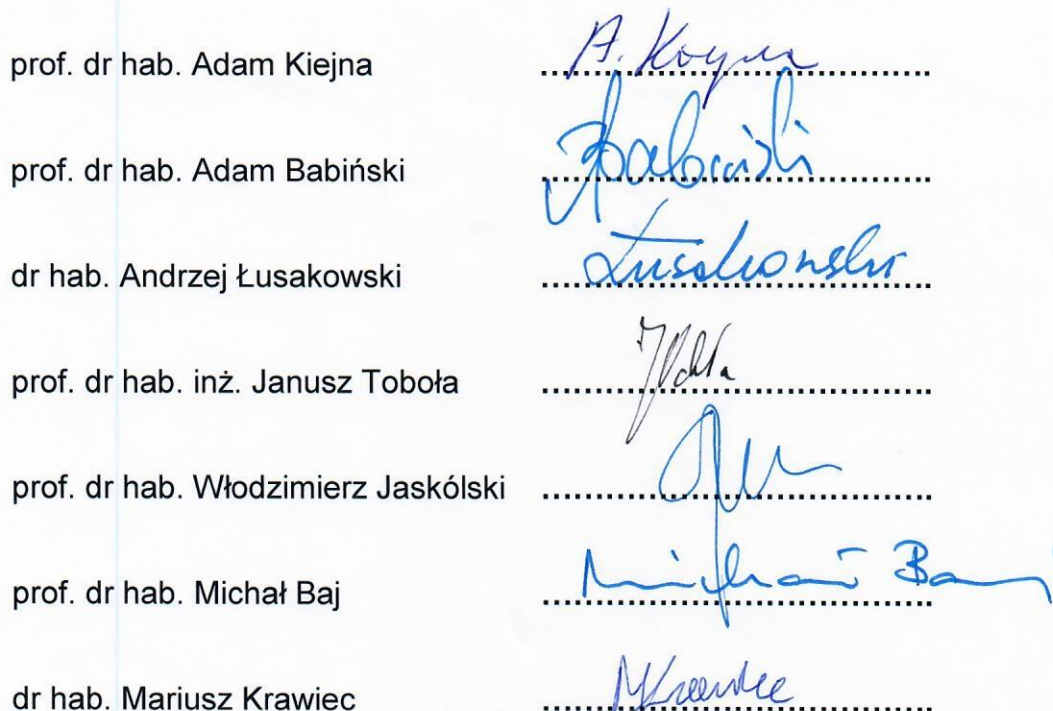 prof. dr hab. Adam Kiejna ........................................
prof. dr hab. Adam Babiński ........................................
dr hab. Andrzej Łusakowski ........................................ Łusakowski
prof. dr hab. inż. Janusz Toboła ........................................
prof. dr hab. Włodzimierz Jaskólski ........................................
prof. dr hab. Michał Baj ........................................ Michał Baj
dr hab. Mariusz Krawiec ........................................ MKrawiec